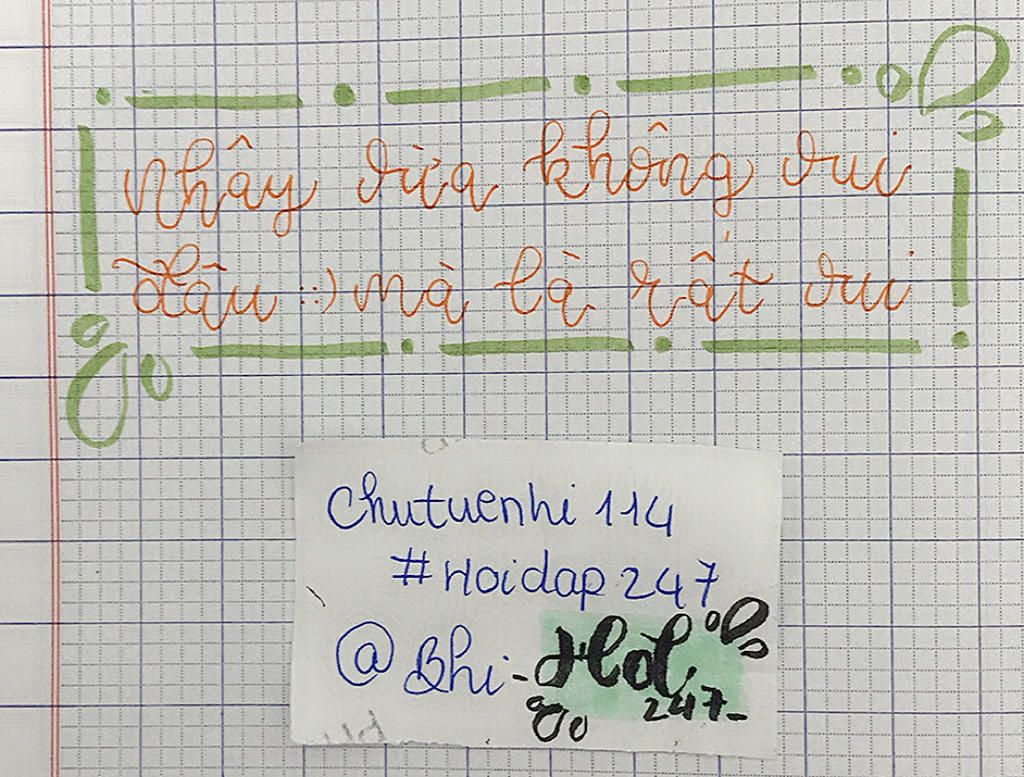 nhây vừa không vui
đâu ::) mà là rất vui
Chutuenhi 114
#Hoidap 247
@Bhi-
247-